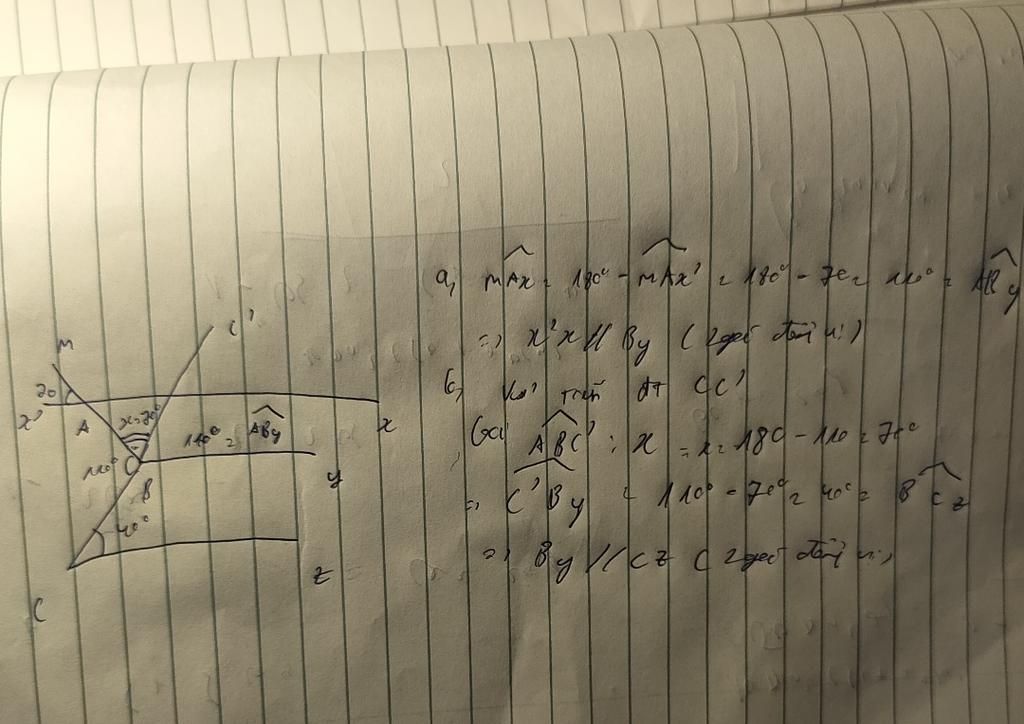 M
C'
70
x'
A
x=70°
110° = ABy
x
110°
B
y
40°
z
C
a, mAx = 180° - mAx' = 180° - 70 = 110° = ABy
=> x'x // By (2 góc
b, Kẻ CC'
Gọi ABC' : x = x = 180 - 110 = 70°
=> C'By = 110° - 70° = 40° = BCz
=> By // Cz (2 góc